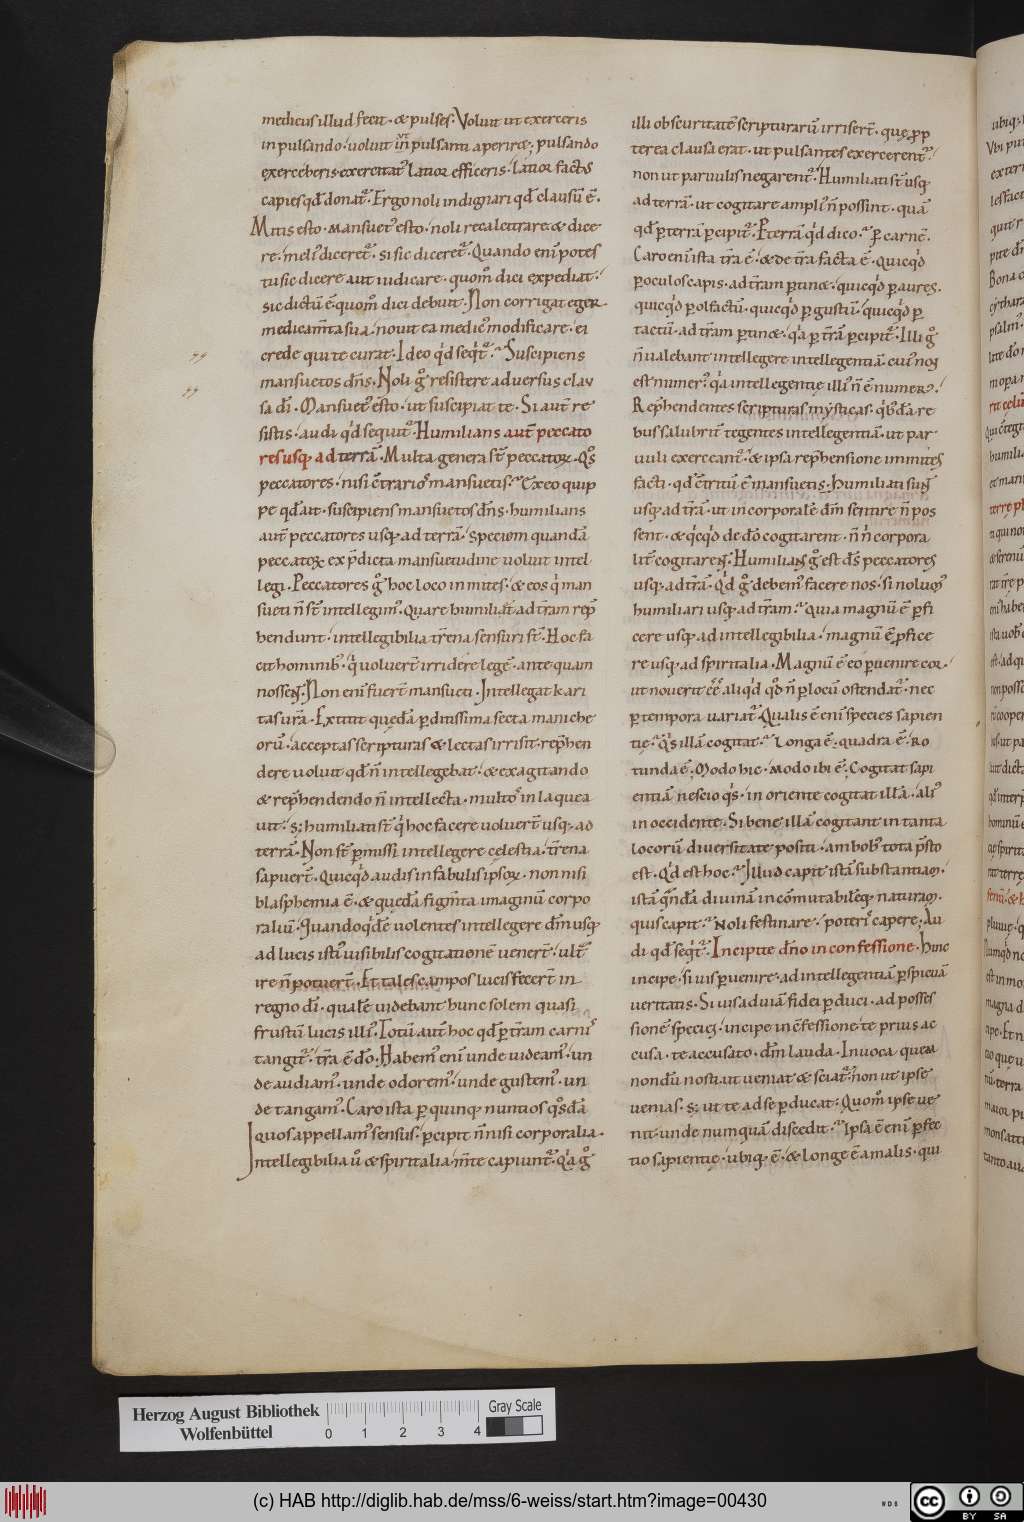 medicus illud fecit · & pulses · Voluit ut exerceris
in pulsando · uoluit ut in pulsanti aperir&; pulsando
exerceberis · exercitat᷒ latior efficeris · latior fact᷒
capies qđ donat᷑ · Ergo noli indignari qđ clausū ē ·
Mitis esto · mansuet᷒ esto · noli recalcitrare · & dice
re · meli᷒ diceret᷑ · si sic diceret᷑ · Quando eni᷒ potes
tu sic dicere aut iudicare · quom̄ dici expediat ·
sic dictū ē · quom̄ dici debuit · Non corrigat eger
medicam̄ta sua · nouit ea medic᷒ modificare · ei
crede qui te curat · Ideo qd seqt᷑ · Suscipiens
mansuetos dn̄s · Noli g̊ resistere aduersus clau
sa dī · Mansuet᷒ esto · ut suscipiat te · Si aut̄ re
sistis · audi qd sequit᷑ · Humilians aut̄ peccato
res usq; ad terrā · Multa genera st̄ peccatoꝝ · Qs̄
peccatores · nisi c̄trarios mansuetis · Ex eo quip
pe qđ ait · suscipiens mansuetos dn̄s · humilians
aut̄ peccatores usq; ad terrā · speciem quandā
peccatoꝝ ex p̄dicta mansuetudine uoluit intel
legi · Peccatores g̊ hoc loco in mites · & eos qi man
sueti n̄ st̄ intellegim᷒ · Quare humiliat ad tr̄am rep̄
hendunt · intellegibilia tr̄ena sensuri st̄ · Hoc fa
cit hominib᷒ · qi uoluert̄ irridere legē · ante quam
nossen̄ · Non eni᷒ fuert̄ mansueti · Intellegat kari
tas ura · Extitit quędā ꝑditissima secta maniche
orū · acceptas scripturas & lectas irrisit · rep̄hen
dere uoluit qđ n̄ intellegebat · & exagitando
& rep̄hendendo n̄ intellecta · multos in laquea
uit · S; humiliati st̄ qi hoc facere uoluert̄ usq; ad
terrā · Non st̄ ꝑmissi intellegere celestia · tr̄ena
sapuert̄ · Quicqd audis in fabulis ipsoꝝ · non nisi
blasphemia ē · & quędā figm̄ta imaginū corpo
raliū · Quando qđē uolentes intellegere dm̄ usq;
ad lucis isti᷒ uisibilis cogitationē uenert̄ · ult᷑
ire n̄ potuert̄ · Et tales campos lucis fecert̄ in
regno dī · qualē uidebant hunc solem quasi
frustū lucis illi᷒ · Totū aut̄ hoc qđ ꝑ tr̄am carnis
tangit᷑ · tr̄a ē dō · Habem᷒ eni᷒ unde uideam᷒ · un
de audiam᷒ · unde odorem᷒ · unde gustem᷒ · un
de tangam᷒ · Caro ista ꝑ quinq; nuntios qs̄dā
quos appellam᷒ sensus · ꝑcipit n̄ nisi corporalia ·
Intellegibilia ū & spiritalia m̄te capiunt᷑ · Qa g̊
illi obscuritatē scripturarū irrisert̄ · quę ꝓp
terea clausa erat · ut pulsantes exercerent᷑ ·
non ut paruulis negarent᷑ · Humiliati st̄ usq;
ad terrā · ut cogitare ampli᷒ n̄ possint · quā
qđ ꝑ terrā ꝑcipit᷑ · Ꝑ terrā qd dico · ꝑ carnē ·
Caro eni᷒ ista tr̄a ē · & de tr̄a facta ē · Quicqd
ꝑ oculos capis · ad tr̄am ꝑtin& · quicqd ꝑ aures ·
quicqd ꝑ olfactū · quicqd ꝑ gustū · quicqd ꝑ
tactū · ad tr̄am ꝑtin& · qa ꝑ tr̄ā ꝑcipit᷑ · Illi g̊
n̄ ualebant intellegere intellegentiā · cui᷒ non
est numer᷒ · qa intellegentię illi᷒ n̄ ē numer᷒ ·
Rep̄hendentes scripturas mysticas · qb᷒dā re
bus salubrit̄ tegentes intellegentiā · ut par
uuli exerceant᷑ · & ipsa rep̄hensione inmites
facti · qđ c̄tritū ē mansuetis · humiliati sun̄
usq; ad tr̄ā · ut incorporalē dm̄ sentire n̄ pos
sent · & qcqd de dō cogitarent · n̄ n̄ corpora
lit̄ cogitaren̄ · Humilians g̊ est dn̄s peccatores
usq; ad tr̄ā · Qd g̊ debem᷒ facere nos · si nolum᷒
humiliari usq; ad tr̄am · Quia magnū ē ꝓfi
cere usq; ad intellegibilia · magnū ē ꝓfice
re usq; ad spiritalia · Magnū ē eo ꝑuenire cor ·
ut nouerit ēē aliqd qđ n̄ ꝑ locū ostendat᷑ · nec
ꝑ tempora uariat᷑ · Qualis ē eni᷒ species sapien
tię · Qs illā cogitat · Longa ē; quadra ē · Ro
tunda ē; Modo hic · modo ibi ē; Cogitat sapi
entiā nescio qs · in oriente cogitat illā · ali᷒
in occidente · Si bene illā cogitant in tanta
locorū diuersitate positi · ambob᷒ tota p̄sto
est · Qd est hoc · Illud capit istā substantiam ·
istā qn̄dā diuinā incōmutabilēq; naturam ·
quis capit · Noli festinare · poteris capere; Au
di qđ seqt᷑ · Incipite dn̄o in confessione · hinc
incipe · si uis ꝑuenire · ad intellegentiā ꝑspicuā
ueritatis · Si uis a duiā fidei ꝑduci · ad posses
sionē speciei · incipe in c̄fessione · te prius ac
cusa · te accusato · dm̄ lauda · Inuoca quem
nondū nosti ut ueniat & sciat᷑ · non ut ipse
uenias · s; ut te ad se ꝑducat · Quom̄ ipse ue
nit · unde numquā discedit · Ipsa ē eni᷒ ꝑfec
tio sapientię · ubiq; ē · & longe ē a malis · qui
Herzog August Bibliothek
Wolfenbüttel
0 1 2 3 4
Gray Scale
(c) HAB http://diglib.hab.de/mss/6-weiss/start.htm?image=00430
WDB
cc BY SA